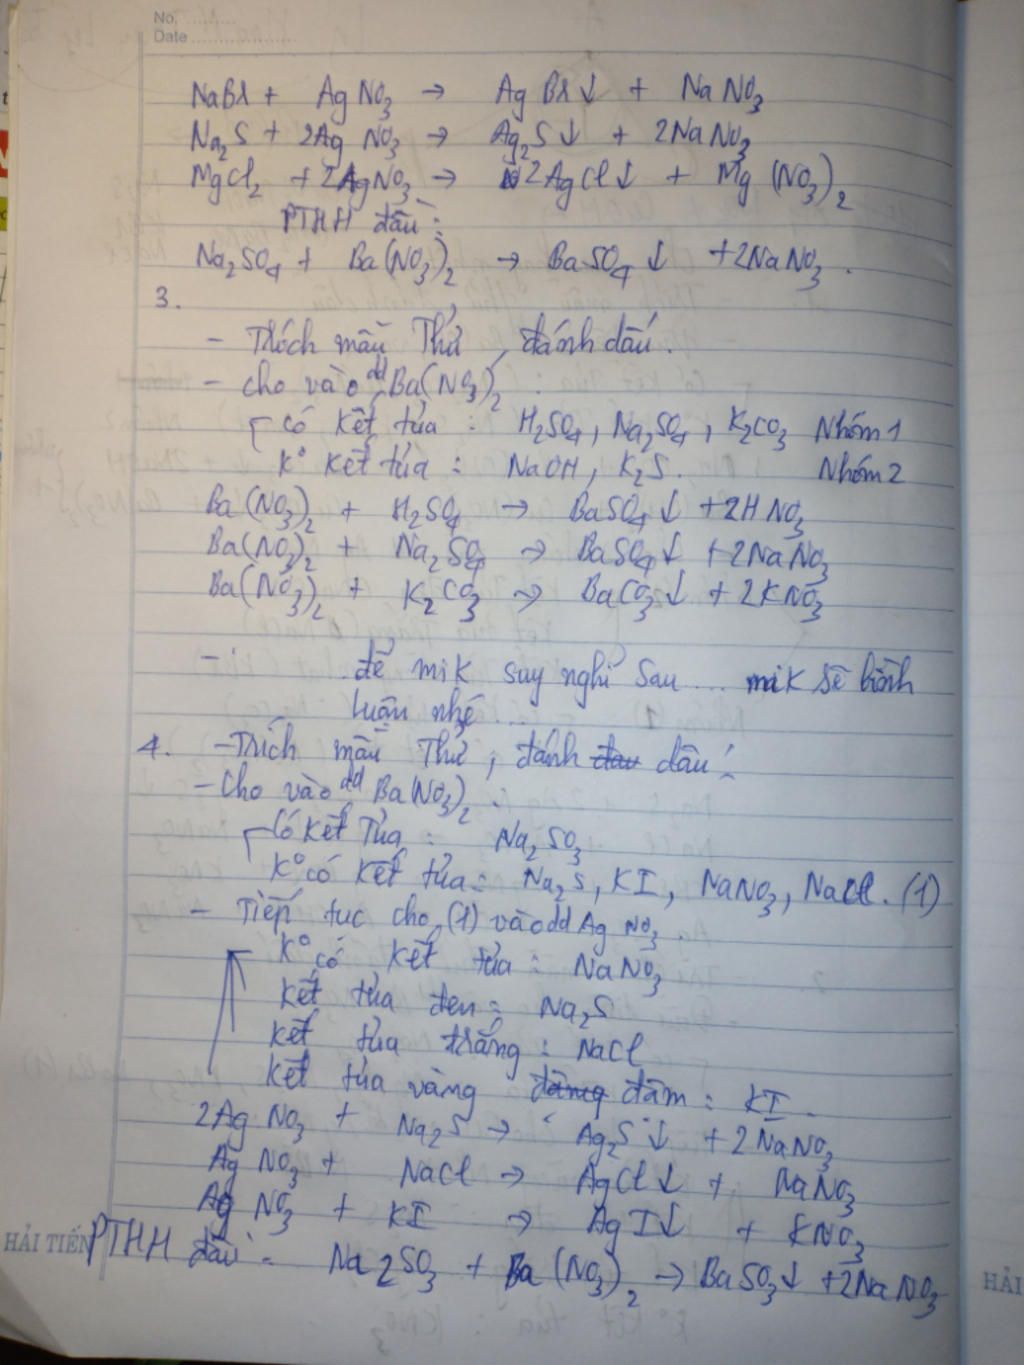 No. ..........
Date ......................
NaBr + AgNO₃ → AgBr↓ + NaNO₃
Na₂S + 2AgNO₃ → Ag₂S↓ + 2NaNO₃
MgCl₂ + 2AgNO₃ → 2AgCl↓ + Mg(NO₃)₂
PTHH đầu:
Na₂SO₄ + Ba(NO₃)₂ → BaSO₄↓ + 2NaNO₃.
3.
- Trích mẫu thử, đánh dấu.
- cho vào dd Ba(NO₃)₂
có kết tủa : H₂SO₄, Na₂SO₄, K₂CO₃ Nhóm 1
K° kết tủa : NaOH, K₂S. Nhóm 2
Ba(NO₃)₂ + H₂SO₄ → BaSO₄↓ + 2HNO₃
Ba(NO₃)₂ + Na₂SO₄ → BaSO₄↓ + 2NaNO₃
Ba(NO₃)₂ + K₂CO₃ → BaCO₃↓ + 2KNO₃
- để mik suy nghĩ sau ... mik sẽ bình
luận nhé ...
4. - Trích mẫu thử, đánh dấu.
- Cho vào dd Ba(NO₃)₂.
Có kết tủa : Na₂SO₃
K° có kết tủa : Na₂S, KI, NaNO₃, NaCl. (1)
- Tiếp tục cho (1) vào dd AgNO₃.
K° có kết tủa : NaNO₃
kết tủa đen : Na₂S
kết tủa trắng : NaCl
kết tủa vàng đậm : KI.
2AgNO₃ + Na₂S → Ag₂S↓ + 2NaNO₃
AgNO₃ + NaCl → AgCl↓ + NaNO₃
AgNO₃ + KI → AgI↓ + KNO₃
HẢI TIẾN PTHH đầu : Na₂SO₃ + Ba(NO₃)₂ → BaSO₃↓ + 2NaNO₃
HẢI